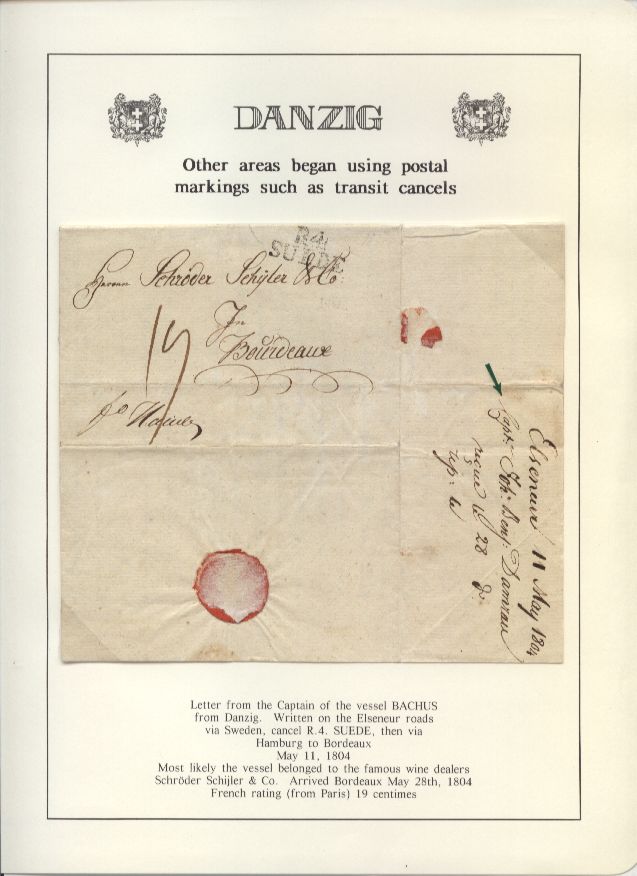 DANZIG
Other areas began using postal
markings such as transit cancels
R.4.
SUEDE
Herren Schröder Schijler & Co
In
Bourdeaux
19
fo
Elseneur 11 May 1804
Capt: Joh: Benj: Damrau
reçue le 28 do
rép: le
Letter from the Captain of the vessel BACHUS
from Danzig. Written on the Elseneur roads
via Sweden, cancel R.4. SUEDE, then via
Hamburg to Bordeaux
May 11, 1804
Most likely the vessel belonged to the famous wine dealers
Schröder Schijler & Co. Arrived Bordeaux May 28th, 1804
French rating (from Paris) 19 centimes